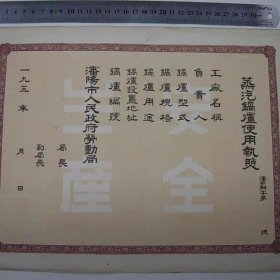 蒸汽鍋爐使用執照
工廠名稱
負責人
鍋爐型式
鍋爐規格
鍋爐用途
鍋爐設置地址
鍋爐編號
瀋陽市人民政府勞動局
局長
副局長
一九五 年 月 日
安全
生產